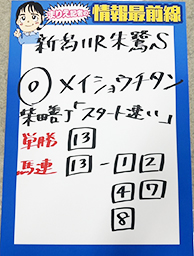 情報最前線
新潟11R朱鷺S
◎メイショウチタン
柴田善J「スタート速い」
単勝 13
馬連 13-1 2
4 7
8